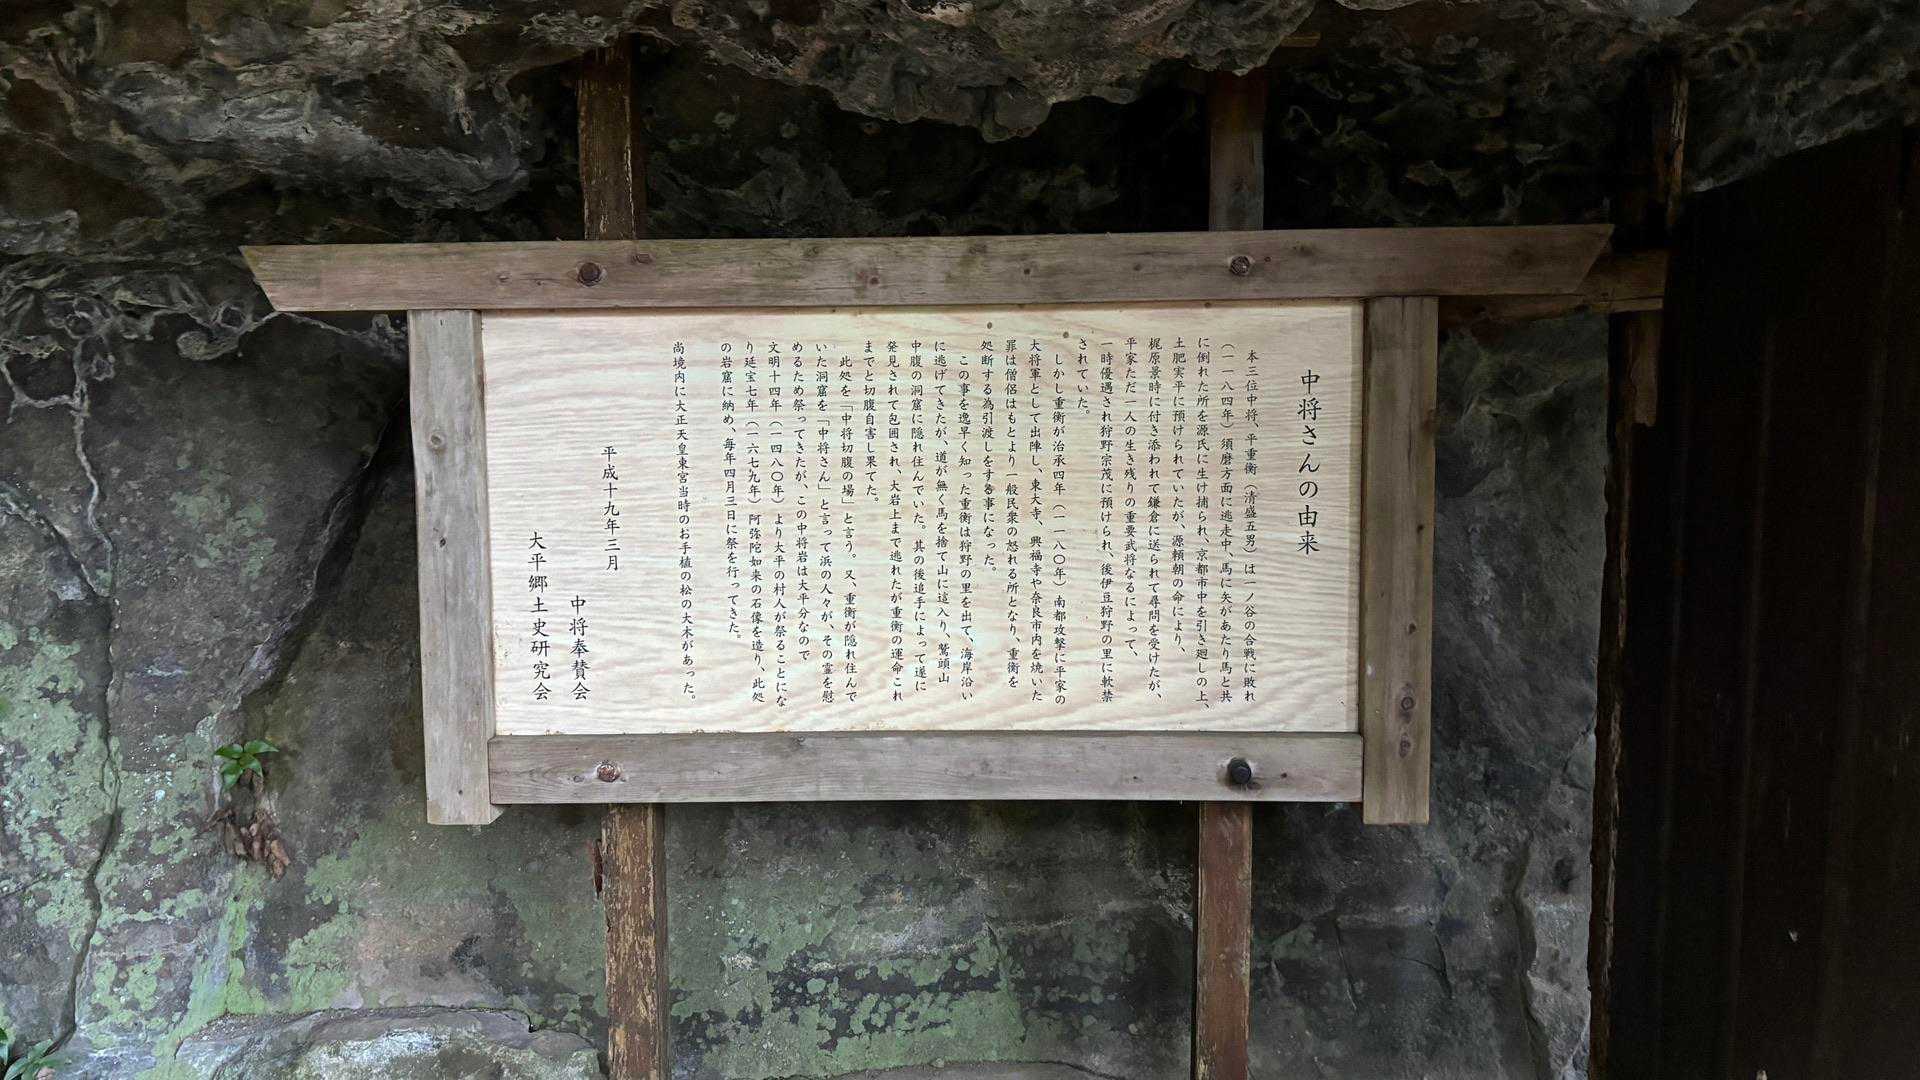 中将さんの由来
本三位中将、平重衡（清盛五男）は一ノ谷の合戦に敗れ
（一一八四年）須磨方面に逃走中、馬に矢があたり馬と共
に倒れた所を源氏に生け捕られ、京都市中を引き廻しの上、
土肥実平に預けられていたが、源頼朝の命により、
梶原景時に付き添われて鎌倉に送られて尋問を受けたが、
平家ただ一人の生き残りの重要武将なるによって、
一時優遇され狩野宗茂に預けられ、後伊豆狩野の里に軟禁
されていた。
しかし重衡が治承四年（一一八〇年）南都攻撃に平家の
大将軍として出陣し、東大寺、興福寺や奈良市内を焼いた
罪は僧侶はもとより一般民衆の怒れる所となり、重衡を
処断する為引渡しをする事になった。
この事を逸早く知った重衡は狩野の里を出て、海岸沿い
に逃げてきたが、道が無く馬を捨て山に這入り、鷲頭山
中腹の洞窟に隠れ住んでいた。其の後追手によって遂に
発見されて包囲され、大岩上まで逃れたが重衡の運命これ
までと切腹自害し果てた。
此処を「中将切腹の場」と言う。又、重衡が隠れ住んで
いた洞窟を「中将さん」と言って浜の人々が、その霊を慰
めるため祭ってきたが、この中将岩は大平分なので
文明十四年（一四八〇年）より大平の村人が祭ることにな
り延宝七年（一六七九年）阿弥陀如来の石像を造り、此処
の岩窟に納め、毎年四月三日に祭を行ってきた。
尚境内に大正天皇東宮当時のお手植の松の大木があった。
平成十九年三月
中将奉賛会
大平郷土史研究会